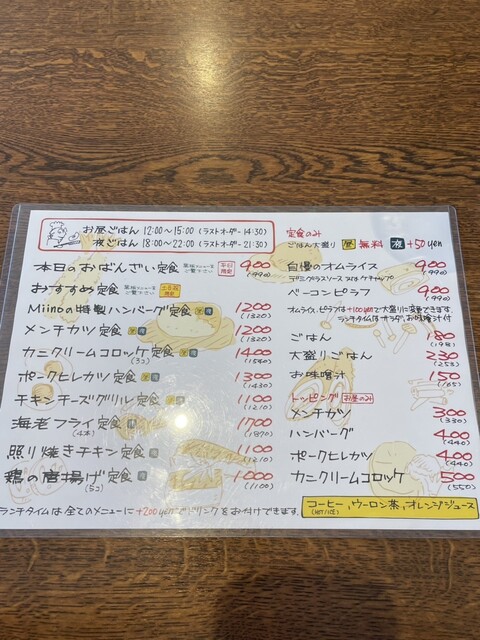 お昼ごはん 12:00～15:00 (ラストオーダー14:30)
夜ごはん 18:00～22:00 (ラストオーダー21:30)
本日のおばんざい定食 黒板メニューをご覧下さい 平日限定 900 (990)
おすすめ定食 黒板メニューをご覧下さい 土日祝限定
Miinoの特製ハンバーグ定食 1200 (1320)
メンチカツ定食 1200 (1320)
カニクリームコロッケ定食 (3コ) 1400 (1540)
ポークヒレカツ定食 1300 (1430)
チキンチーズグリル定食 1100 (1210)
海老フライ定食 (4本) 1700 (1870)
照り焼きチキン定食 1100 (1210)
鶏の唐揚げ定食 (5コ) 1000 (1100)
定食のみ
ごはん大盛り 昼 無料 夜 +50yen
自慢のオムライス 900 (990)
デミグラスソース又はケチャップ
ベーコンピラフ 900 (990)
オムライス、ピラフは+100yenで大盛りに変更できます。
ランチタイムはサラダ、お味噌汁付
ごはん 180 (198)
大盛りごはん 230 (253)
お味噌汁 150 (165)
トッピング お昼のみ
メンチカツ 300 (330)
ハンバーグ 400 (440)
ポークヒレカツ 400 (440)
カニクリームコロッケ 500 (550)
ランチタイムは全てのメニューに+200yenでドリンクをお付けできます。
コーヒー(HOT/ICE), ウーロン茶, オレンジジュース